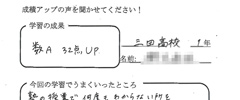 成績アップの声を聞かせてください!
学習の成果
数A 32点UP
三田高校 1年
名前:
今回の学習でうまくいったところ
塾の授業で何度もわからない所を